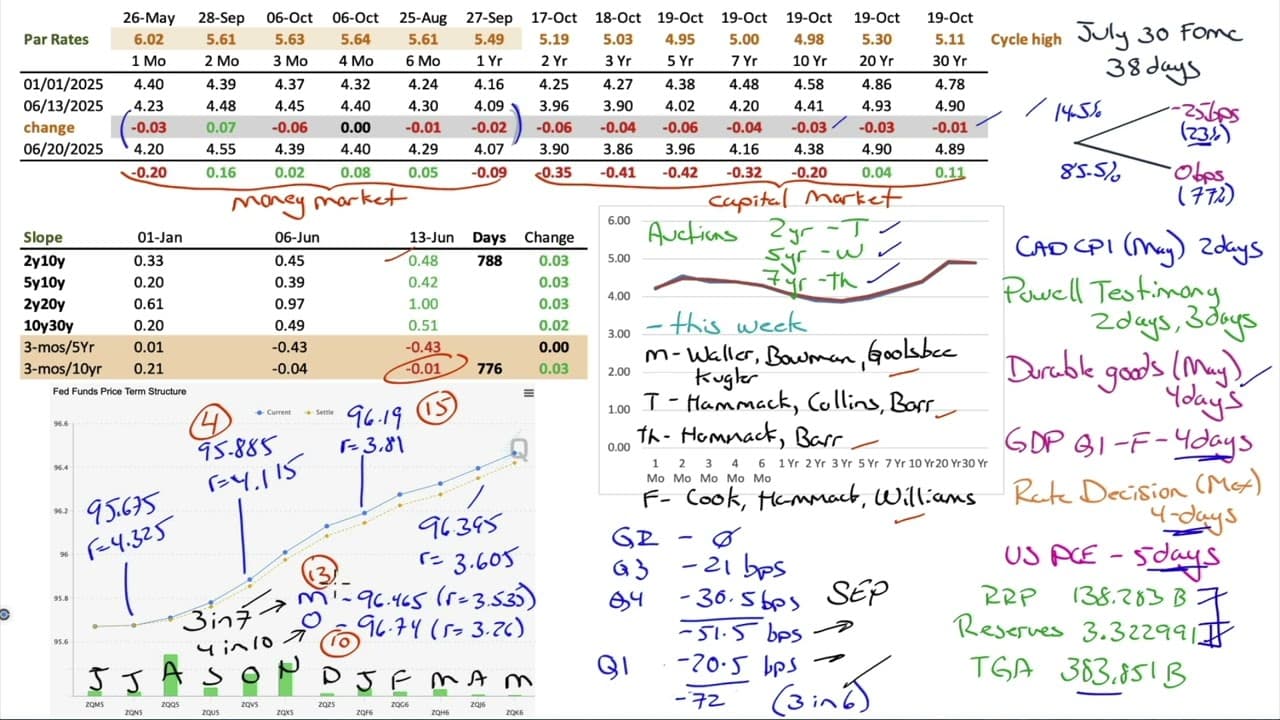 26-May 28-Sep 06-Oct 06-Oct 25-Aug 27-Sep 17-Oct 18-Oct 19-Oct 19-Oct 19-Oct 19-Oct 19-Oct
Par Rates 6.02 5.61 5.63 5.64 5.61 5.49 5.19 5.03 4.95 5.00 4.98 5.30 5.11 Cycle high
1 Mo 2 Mo 3 Mo 4 Mo 6 Mo 1 Yr 2 Yr 3 Yr 5 Yr 7 Yr 10 Yr 20 Yr 30 Yr
01/01/2025 4.40 4.39 4.37 4.32 4.24 4.16 4.25 4.27 4.38 4.48 4.58 4.86 4.78
06/13/2025 4.23 4.48 4.45 4.40 4.30 4.09 3.96 3.90 4.02 4.20 4.41 4.93 4.90
change -0.03 0.07 -0.06 0.00 -0.01 -0.02 -0.06 -0.04 -0.06 -0.04 -0.03 -0.03 -0.01
06/20/2025 4.20 4.55 4.39 4.40 4.29 4.07 3.90 3.86 3.96 4.16 4.38 4.90 4.89
-0.20 0.16 0.02 0.08 0.05 -0.09 -0.35 -0.41 -0.42 -0.32 -0.20 0.04 0.11
money market
capital market
July 30 Fomc
38 days
14.5%
-25bps
(23%)
85.5%
0bps
(77%)
Slope 01-Jan 06-Jun 13-Jun Days Change
2y10y 0.33 0.45 0.48 788 0.03
5y10y 0.20 0.39 0.42 0.03
2y20y 0.61 0.97 1.00 0.03
10y30y 0.20 0.49 0.51 0.02
3-mos/5Yr 0.01 -0.43 -0.43 0.00
3-mos/10yr 0.21 -0.04 -0.01 776 0.03
6.00
5.00
4.00
3.00
2.00
1.00
0.00
Auctions 2yr - T
5yr - W
7yr - Th
- this week
m - Waller, Bowman, Goolsbee
Kugler
T - Hammack, Collins, Barr
Th - Hammack, Barr
1 Mo 2 Mo 3 Mo 4 Mo 6 Mo 1 Yr 2 Yr 3 Yr 5 Yr 7 Yr 10 Yr 20 Yr 30 Yr
F - Cook, Hammack, Williams
CAD CPI (May) 2days
Powell Testimony
2days, 3days
Durable goods (May)
4days
GDP Q1 - F - 4days
Rate Decision (Mex)
4-days
US PCE - 5days
RRP 138.283 B
Reserves 3.322991
TGA 383.851 B
Fed Funds Price Term Structure
Current Settle
Q
96.6
96.4
96.2
96
95.8
95.6
4
95.885
r=4.115
96.19
r=3.81
15
95.675
r=4.325
96.395
r=3.605
13
3 in 7 m - 96.465 (r=3.535)
4 in 10 O - 96.74 (r=3.26)
10
J J A S O N D J F M A M
ZQM5 ZQN5 ZQQ5 ZQU5 ZQV5 ZQX5 ZQZ5 ZQF6 ZQG6 ZQH6 ZQJ6 ZQK6
Q2 - 0
Q3 -21 bps
Q4 -30.5bps SEP
-51.5 bps
Q1 -20.5 bps
-72 (3 in 6)